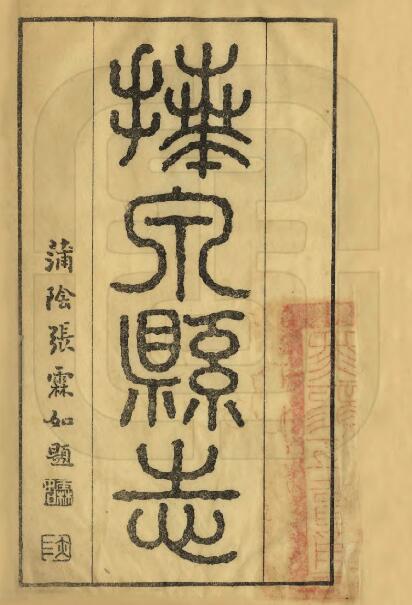 拜泉縣志
蒲陰張霖如題